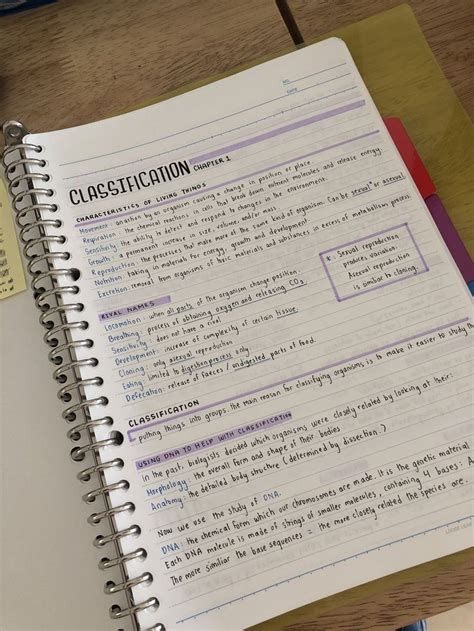 NO.
DATE.
CLASSIFICATION CHAPTER 1
CHARACTERISTICS OF LIVING THINGS
Movement: an action by an organism causing a change in position or place
Respiration: the chemical reactions in cells that break down nutrient molecules and release energy.
Sensitivity: the ability to detect and respond to changes in the environment.
Growth: a permanent increase in size, volume and/or mass.
Reproduction: the processes that make more of the same kind of organism. Can be sexual* or asexual.
Nutrition: taking in materials for energy, growth and development
Excretion: removal from organisms of toxic materials and substances in excess of metabolism process
* Sexual reproduction
produces variation.
Asexual reproduction
is similar to cloning.
RIVAL NAMES
Locomotion: when all parts of the organism change position
Breathing: process of obtaining oxygen and releasing CO2
Sensitivity: does not have a rival.
Development: increase of complexity of certain tissue
Cloning: only asexual reproduction
Eating: limited to digestion process only
Defecation: release of faeces / undigested parts of food.
CLASSIFICATION
putting things into groups. the main reason for classifying organisms is to make it easier to study
USING DNA TO HELP WITH CLASSIFICATION
In the past, biologists decided which organisms were closely related by looking at their:
Morphology: the overall form and shape of their bodies
Anatomy: the detailed body structure (determined by dissection.)
Now we use the study of DNA.
DNA: the chemical form which our chromosomes are made. It is the genetic material
Each DNA molecule is made of strings of smaller molecules, containing 4 bases: A
The more similiar the base sequences = the more closely related the species are.